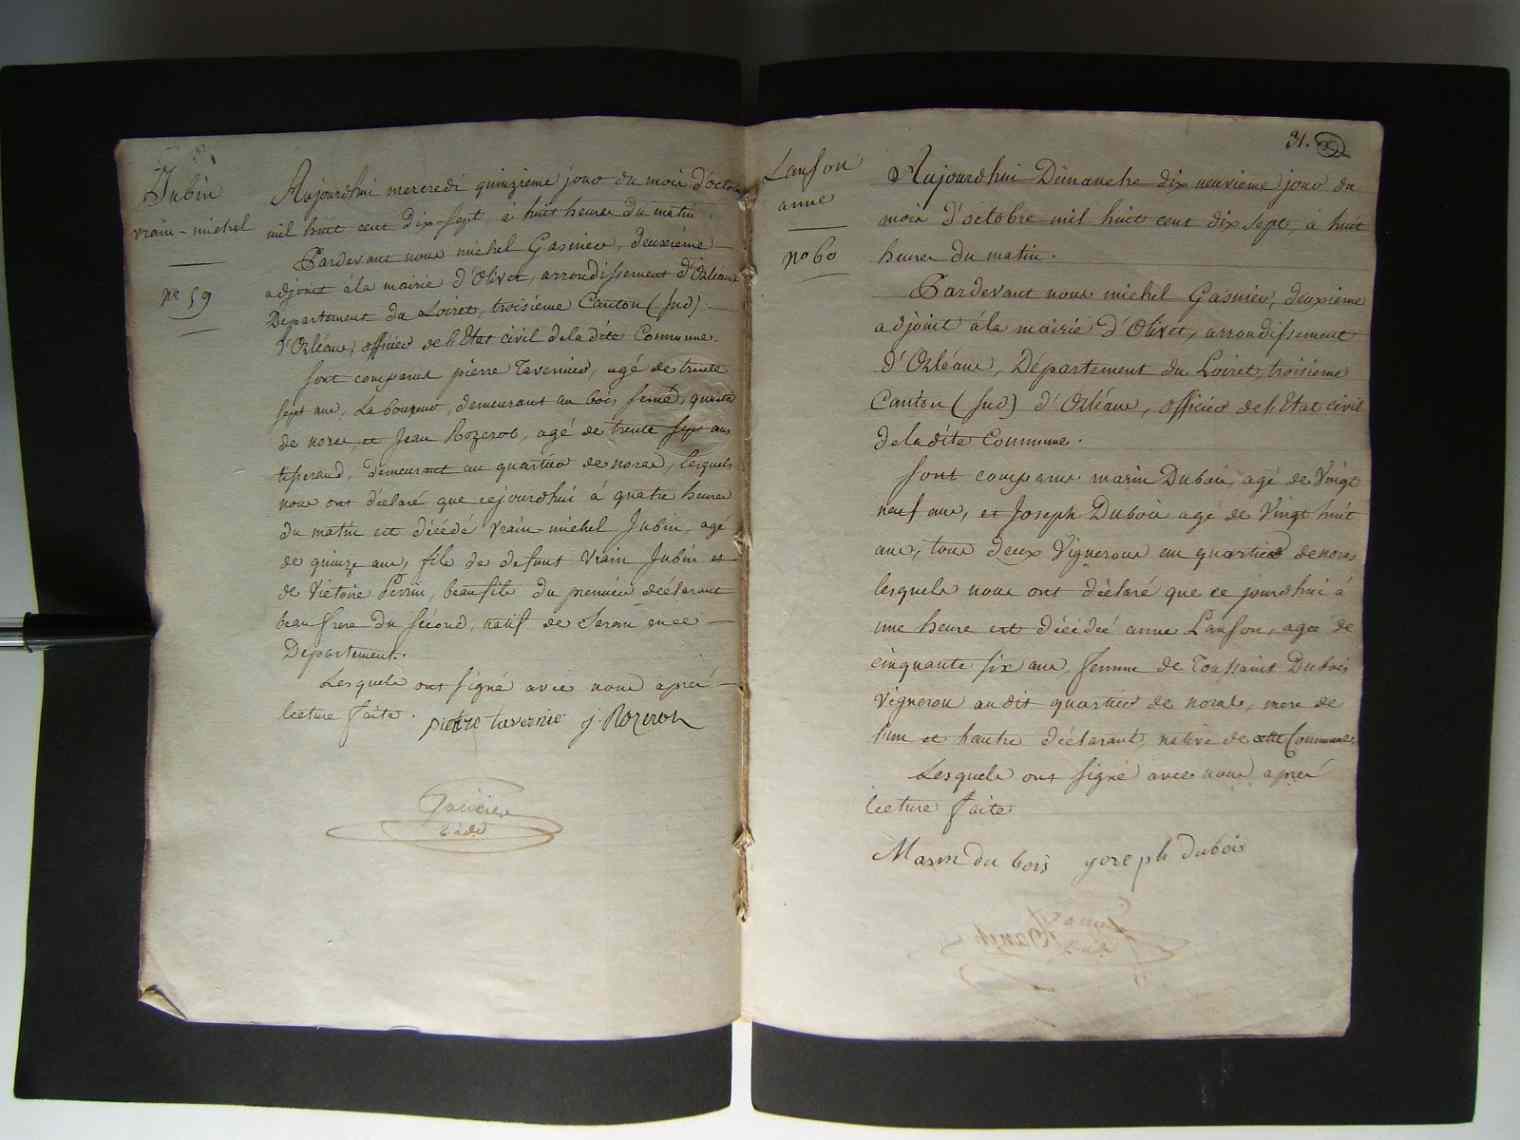 Jubin
vrain-michel
no 59
Aujourdhui mercredi quinzieme jour du mois d'octobre
mil huit cent dix-sept à huit heures du matin.
Pardevant nous michel Gasnier, deuxième
adjoint à la mairie d'Olivet, arrondissement d'Orléans
Département du Loiret, troisième Canton (sud)
d'Orléans, officier de l'Etat civil de ladite Commune.
Sont comparus pierre Tavernier, agé de trente
sept ans, demeurant au bois semé, quartier
de noras, et Jean Rozeron, agé de trente sept ans
tisserand, demeurant au quartier de noras, lesquels
nous ont déclaré que cejourdhui à quatre heures
du matin est décédé vrain-michel Jubin, agé
de quinze ans, fils de defunt vrain Jubin et
de Victoire Perrin, beaufils du premier déclarant
beau frere du second, natif de en ce
Département.
Lesquels ont signé avec nous après
lecture faite. pietre tavernie j. Rozeron
Gasnier
adj
31.
Lanson
anne
no 60
Aujourdhui Dimanche dix neuvieme jour du
mois d'octobre mil huit cent dix sept, à huit
heures du matin.
Pardevant nous michel Gasnier, deuxieme
adjoint à la mairie d'Olivet, arrondissement
d'Orléans, Département du Loiret, troisième
Canton (sud) d'Orléans, officier de l'Etat civil
de ladite Commune.
Sont comparus marin Dubois agé de Vingt
neuf ans, et Joseph Dubois agé de Vingt huit
ans, tous deux Vignerons au quartier de noras
lesquels nous ont déclaré que ce jourdhui à
une heure est décédée anne Lanson, agée de
cinquante six ans, femme de Toussaint Dubois
Vigneron audit quartier de noras, mere de
l'un et l'autre déclarant, native de cette Commune.
Lesquels ont signé avec nous après
lecture faite
Marin du bois yoreph dubois